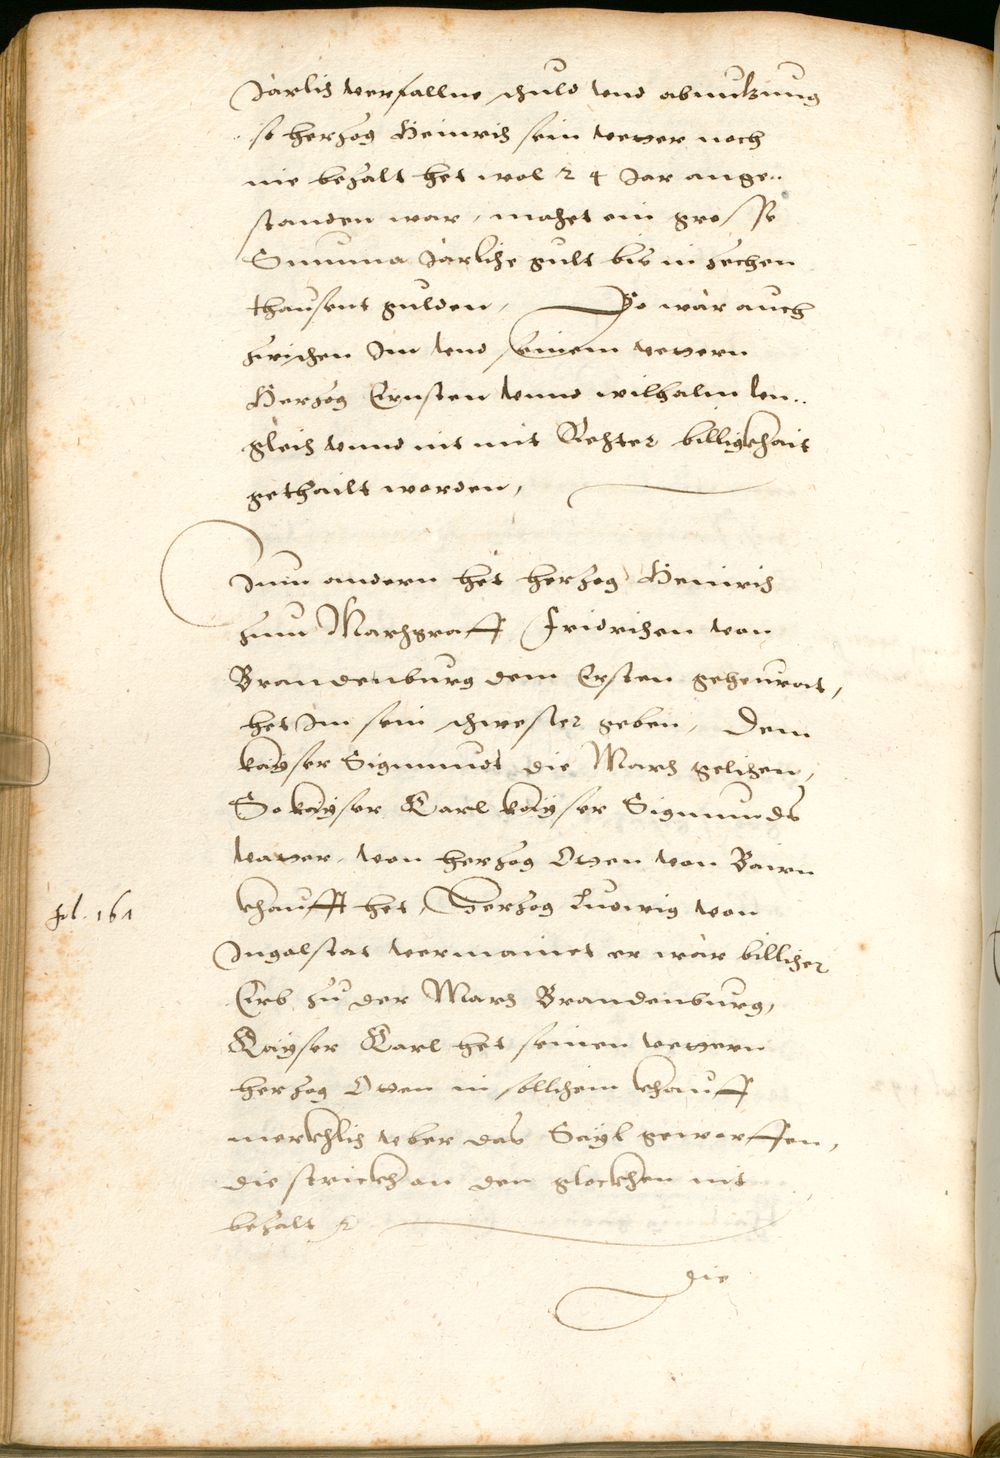 Järlich verfallne schuld vnd abnutzung
so herzog Heinrich sein vetter noch
nie bezalt het wol 24 Jar ange..
standen war, machet ein grosse
Summa Järliche gult bis in sechen
thausent gulden, So wär auch
zwischen Im vnd seinem vettern
Herzog Ernsten vnnd wilhalm vn..
gleich vnnd nit mit Rechter billigkhait
gethailt worden,
Zum andern het herzog Heinrich
zum Marchgraff Fridrichen von
Brandenburg dem Ersten geheurat,
het Im sein schwester geben, Dem
kayser Sigmundt die March gelichen,
So kayser Carl kayser Sigmunds
vatter, von herzog Otten von Bairn
khaufft het, Herzog Ludwig von
Ingolstat vermainet er wär billicher
fol. 161
Erb zu der March Brandenburg,
Kayser Karl het seinen vettern
herzog Otten in sollichem khauff
merckhlich vber das Sayl geworffen,
die strickh an den glockhen nit
bezalt
die